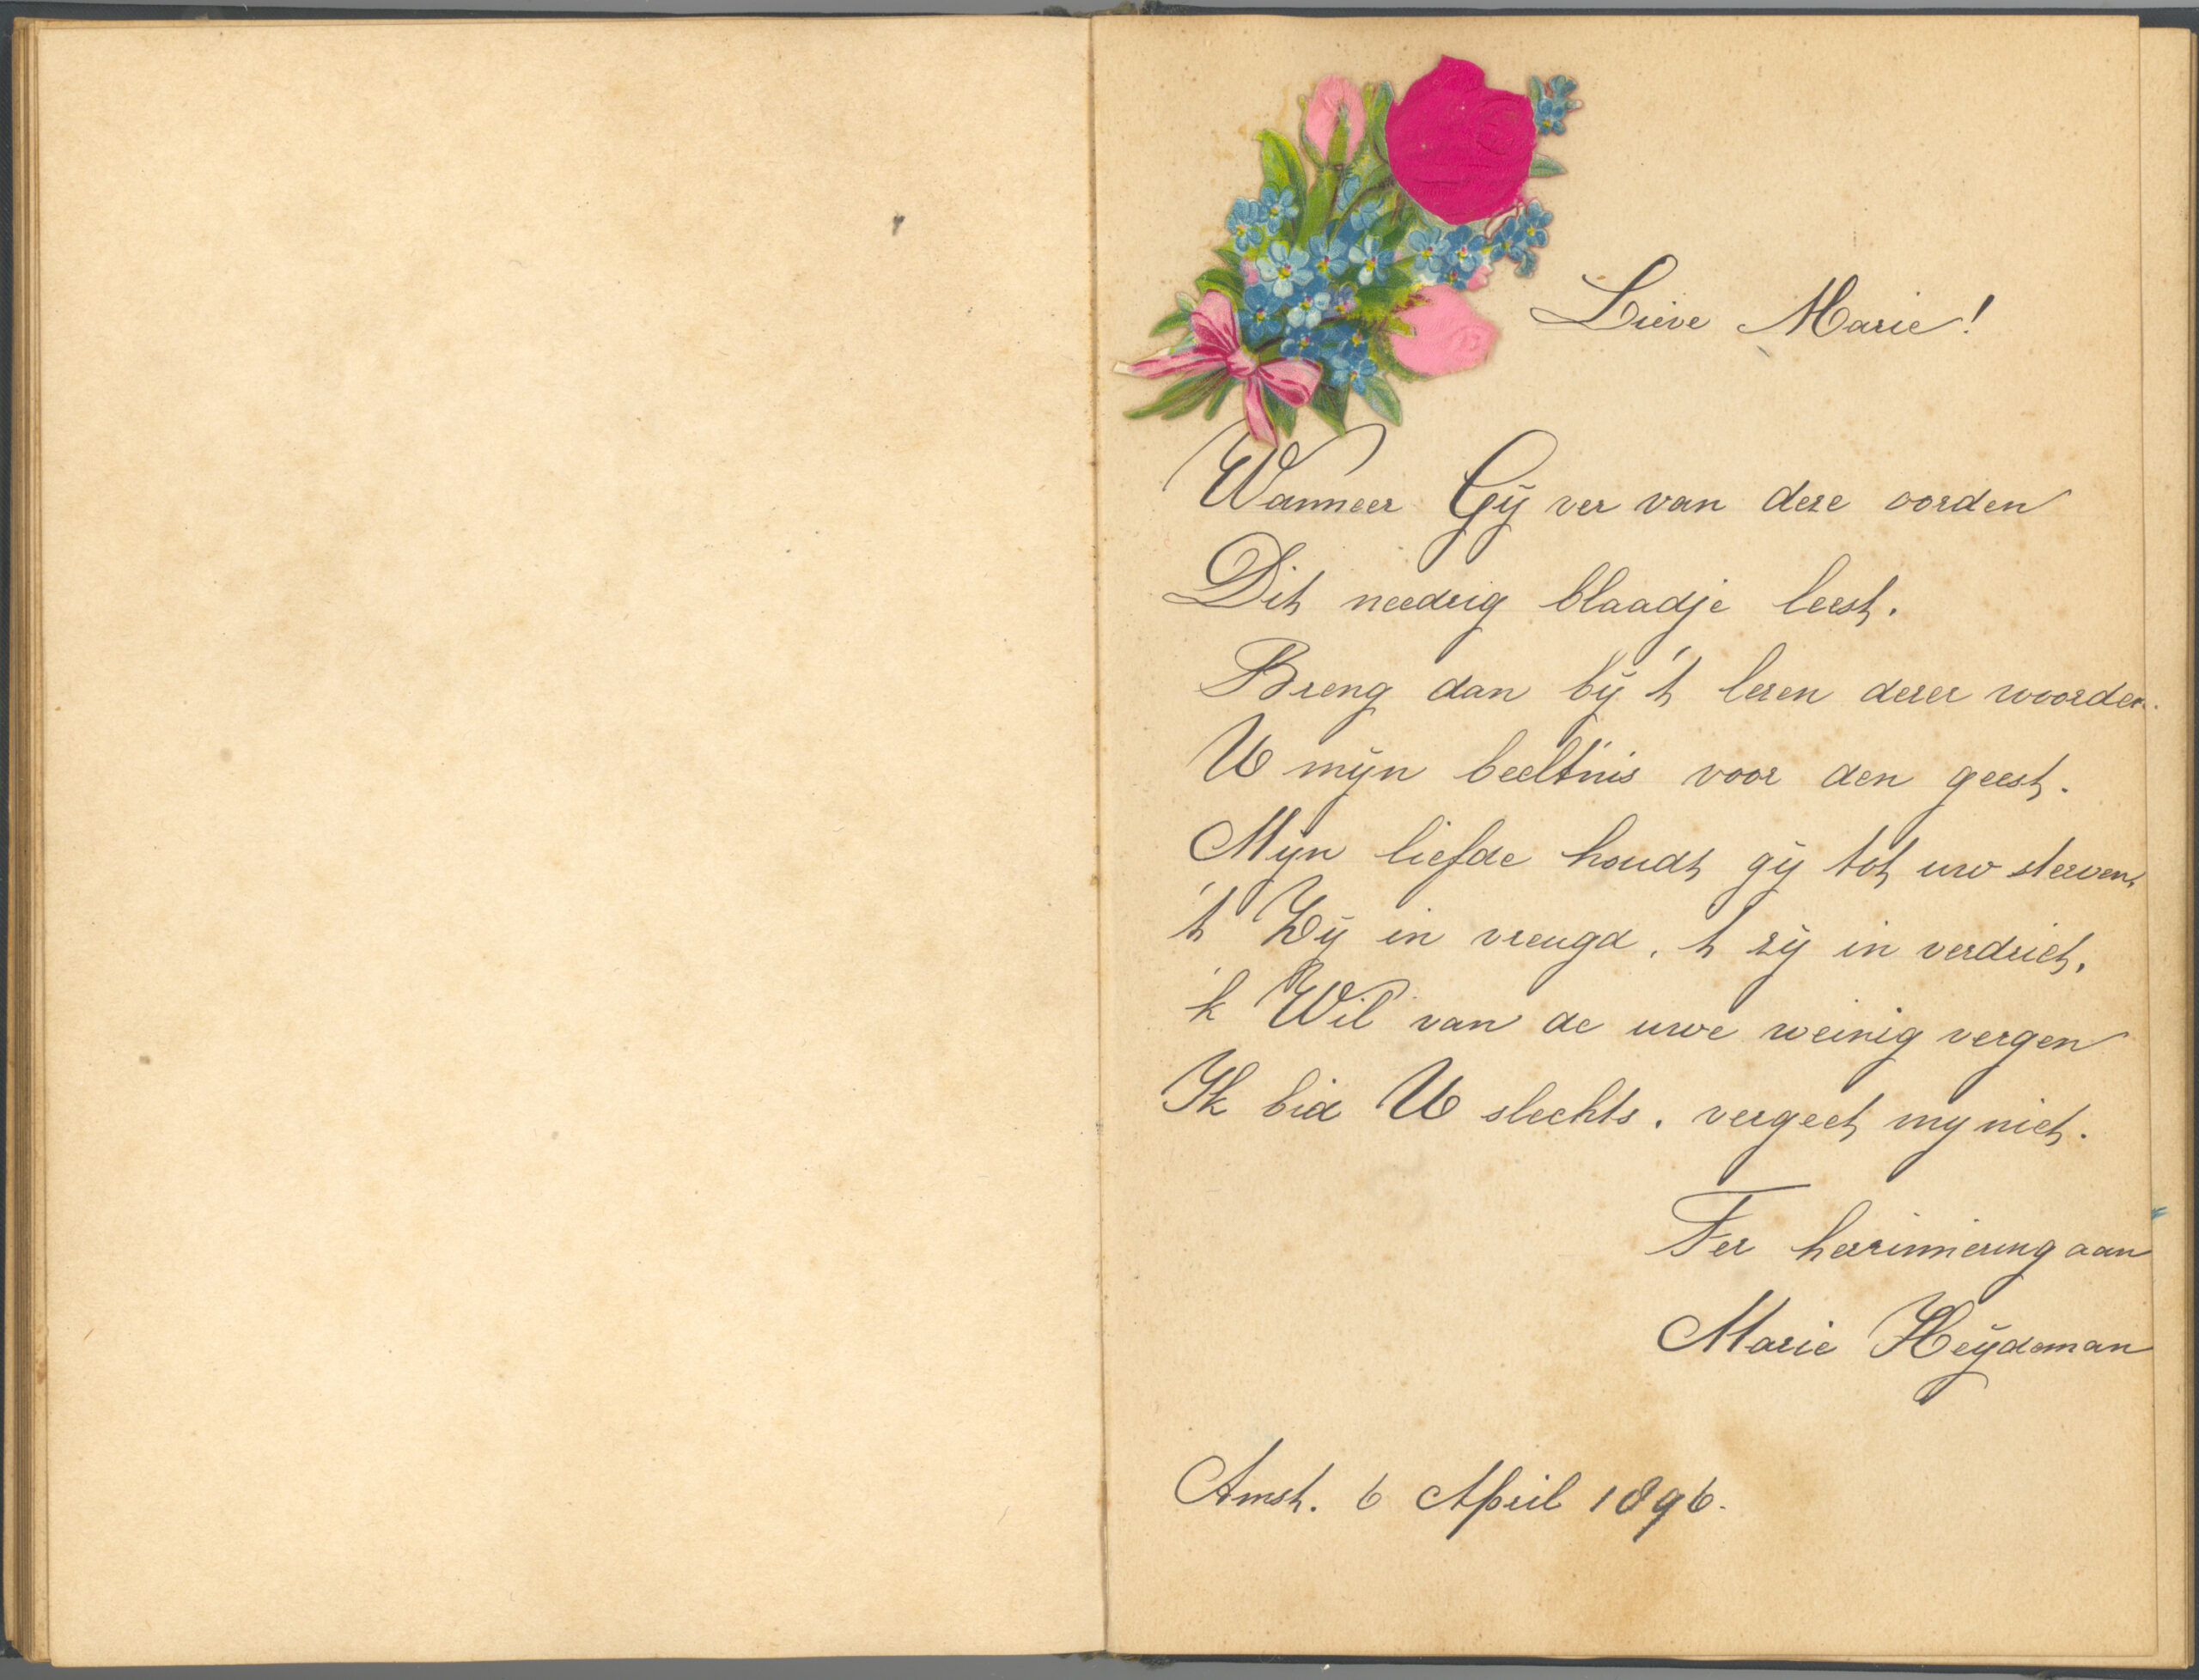 Lieve Marie!
Wanneer Gij ver van deze oorden
Dit needrig blaadje leest.
Breng dan bij 't lezen dezer woorden.
U mijn beeltnis voor den geest.
Mijn liefde houdt gij tot uw sterven,
't Zij in vreugd, t zij in verdriet,
'k Wil van de uwe weinig vergen
Ik bid U slechts, vergeet mij niet.
Ter herinnering aan
Marie Heijdeman
Amst. 6 April 1896.